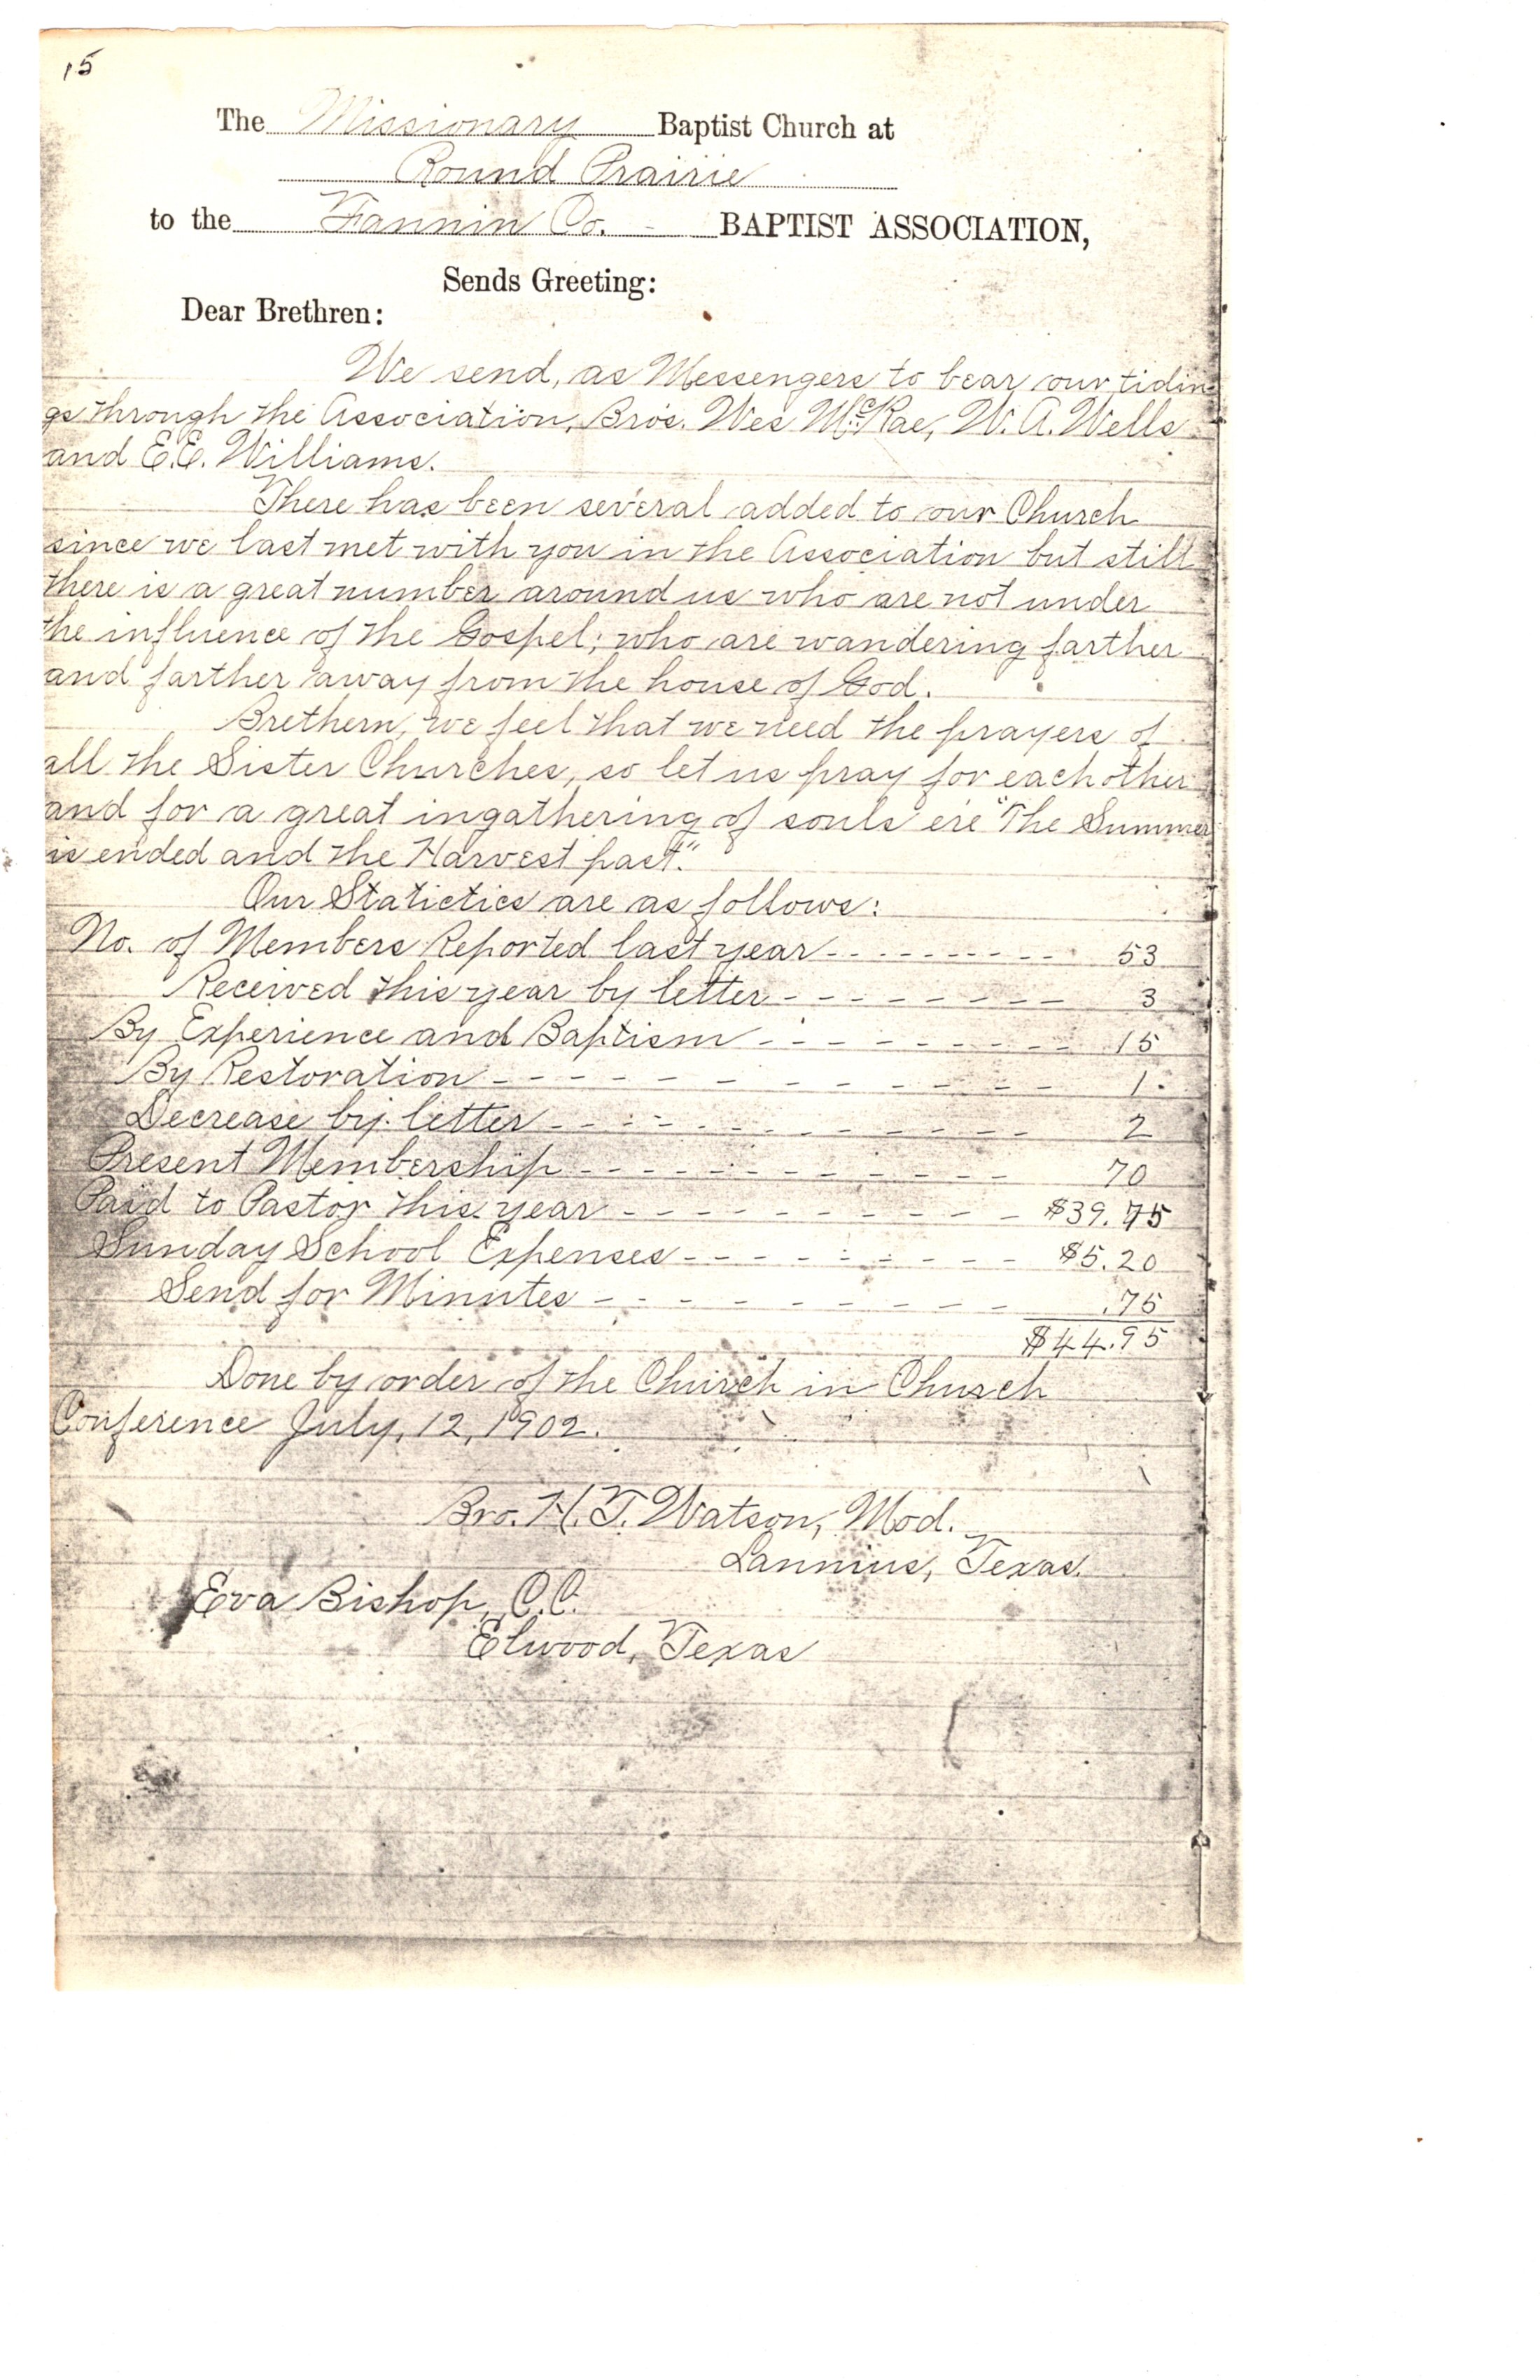 15
The Missionary Baptist Church at
Round Prairie
to the Fannin Co. BAPTIST ASSOCIATION,
Sends Greeting:
Dear Brethren:
We send, as Messengers to bear our tidin
gs through the Association, Bros. Wes McRae, W. A. Wells
and E.E. Williams.
There has been several added to our Church
since we last met with you in the Association but still
there is a great number around us who are not under
the influence of the Gospel; who are wandering farther
and farther away from the house of God.
Brethern, we feel that we need the prayers of
all the Sister Churches, so let us pray for each other
and for a great ingathering of souls ere "The Summer
is ended and the Harvest past."
Our Statictics are as follows:
No. of Members Reported last year - - - - - - - - - 53
Received this year by letter - - - - - - - - 3
By Experience and Baptism - - - - - - - - - 15
By Restoration - - - - - - - - - - - - 1.
Decrease by letter - - - - - - - - - - - 2
Present Membership - - - - - - - - - - 70
Paid to Pastor this year - - - - - - - - - - $39.75
Sunday School Expenses - - - - - - - - - $5.20
Send for Minutes - - - - - - - - - .75
$44.95
Done by order of the Church in Church
Conference July, 12, 1902.
Bro. H. T. Watson, Mod.
Lannius, Texas.
Eva Bishop, C.C.
Elwood, Texas